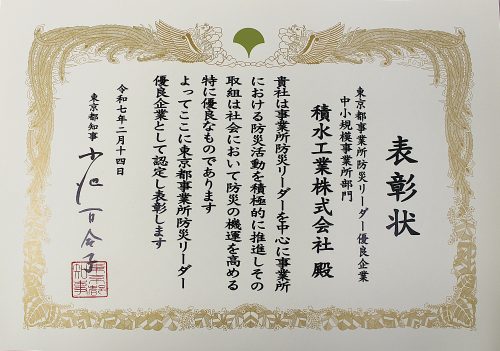 表彰状
東京都事業所防災リーダー優良企業
中小規模事業所部門
積水工業株式会社 殿
貴社は事業所防災リーダーを中心に事業所
における防災活動を積極的に推進しその
取組は社会において防災の機運を高める
特に優良なものであります
よってここに東京都事業所防災リーダー
優良企業として認定し表彰します
令和七年二月十四日
東京都知事 小池百合子